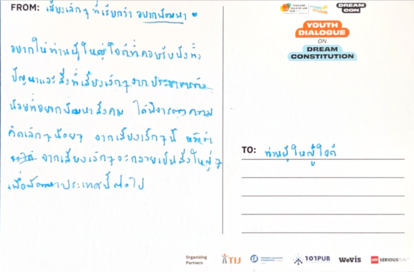 FROM: เสียงเล็กๆ ที่เรียกว่า อยากพัฒนา
DREAM CON
YOUTH DIALOGUE
ON
DREAM CONSTITUTION
อยากให้ท่านผู้ใหญ่ใจดีที่คอยรับฟังทั้ง
ปัญหาและสิ่งที่เสียงเล็กๆ จากประชาชน
น้อยที่อยากพัฒนาสังคม ได้พิจารณาความ
คิดเล็กๆ น้อยๆ จากเสียงเล็กๆ นี้ หวังว่า
จากเสียงเล็กๆ จะกลายเป็นสิ่งใหญ่ๆ
เพื่อพัฒนาประเทศนี้ต่อไป
TO: ท่านผู้ใหญ่ใจดี
Organizing Partners
TIJ
101PUB
WeVis